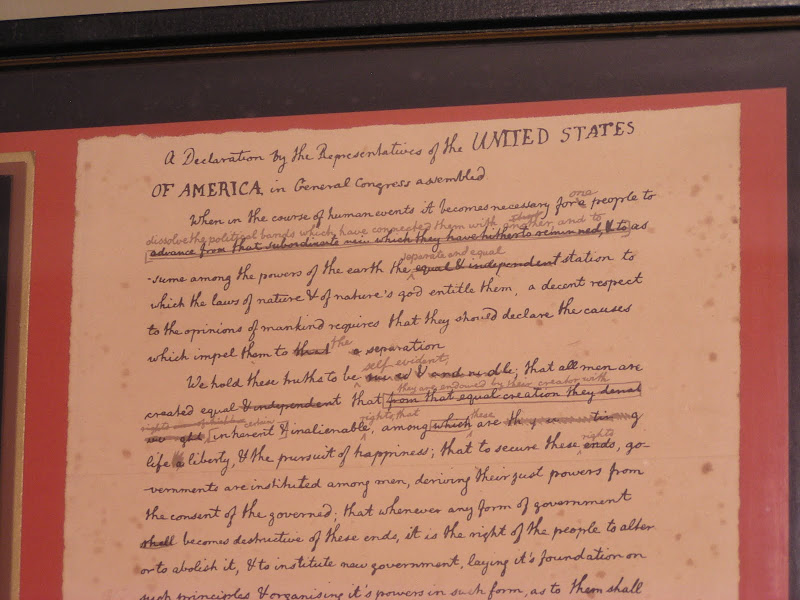 A Declaration by the Representatives of the UNITED STATES
OF AMERICA, in General Congress assembled
one
When in the course of human events it becomes necessary for a people to
dissolve the political bands which have connected them with another and to
advance from that subordination in which they have hitherto remained, & to as
separate and equal
-sume among the powers of the earth the equal & independent station to
which the laws of nature & of nature's god entitle them, a decent respect
to the opinions of mankind requires that they should declare the causes
the
which impel them to that separation
self-evident,
We hold these truths to be & undeniable; that all men are
they are endowed by their creator with
created equal & independent that from that equal creation they
certain rights, that these
inherent & inalienable, among which are
rights
life & liberty, & the pursuit of happiness; that to secure these ends, go-
vernments are instituted among men, deriving their just powers from
the consent of the governed; that whenever any form of government
shall becomes destructive of these ends, it is the right of the people to alter
or to abolish it, & to institute new government, laying it's foundation on
such principles & organising it's powers in such form, as to them shall